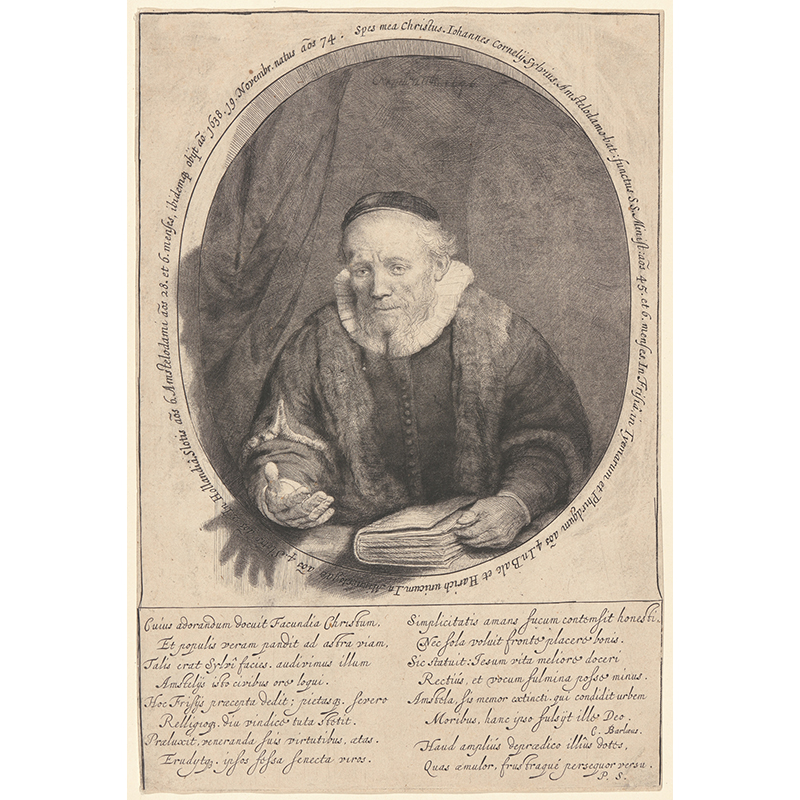 Spes mea Christus. Iohannes Cornelij Sylvius, Amstelodamobat: functus S.S. Minist: aōs 45. et 6. menses. In Frisiâ, in Tyemarum et Phirdgum aōs 4. In Balc et Harich unicum. In aōs 4. Slotis aōs 6. Amstelodami aōs 28. et 6. menses, ibidemq obijt aō. 1638. 19. Novembr. natus aōs 74.
Cuius adorandum docuit Facundia Christum,
Et populis veram pandit ad astra viam,
Talis erat Sylvî facies. audivimus illum
Amstelijs isto civibus ore loqui.
Hoc Frisijs præcepta dedit; pietasq. severo
Relligioq. diu vindice tuta stetit.
Præluxit, veneranda suis virtutibus, ætas.
Erudÿtq. ipsos fessa senecta viros.
Simplicitatis amans fucum contemsit honesti,
Nec sola voluit fronte placere bonis.
Sic statuit: Iesum vita meliore doceri
Rectiùs, et vocum fulmina posse minus.
Amstela, sis memor extincti. qui condidit urbem
Moribus, hanc ipso fulsÿt ille Deo.
C. Barlæus.
Haud ampliùs deprædico illîus dotes,
Quas æmulor, frustraque persequor versu.
P. S.